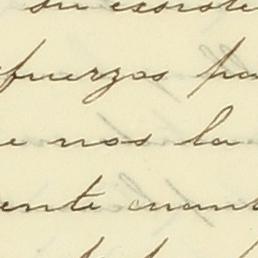 su existe
sfuerzos pa
e nos la
ente cuant